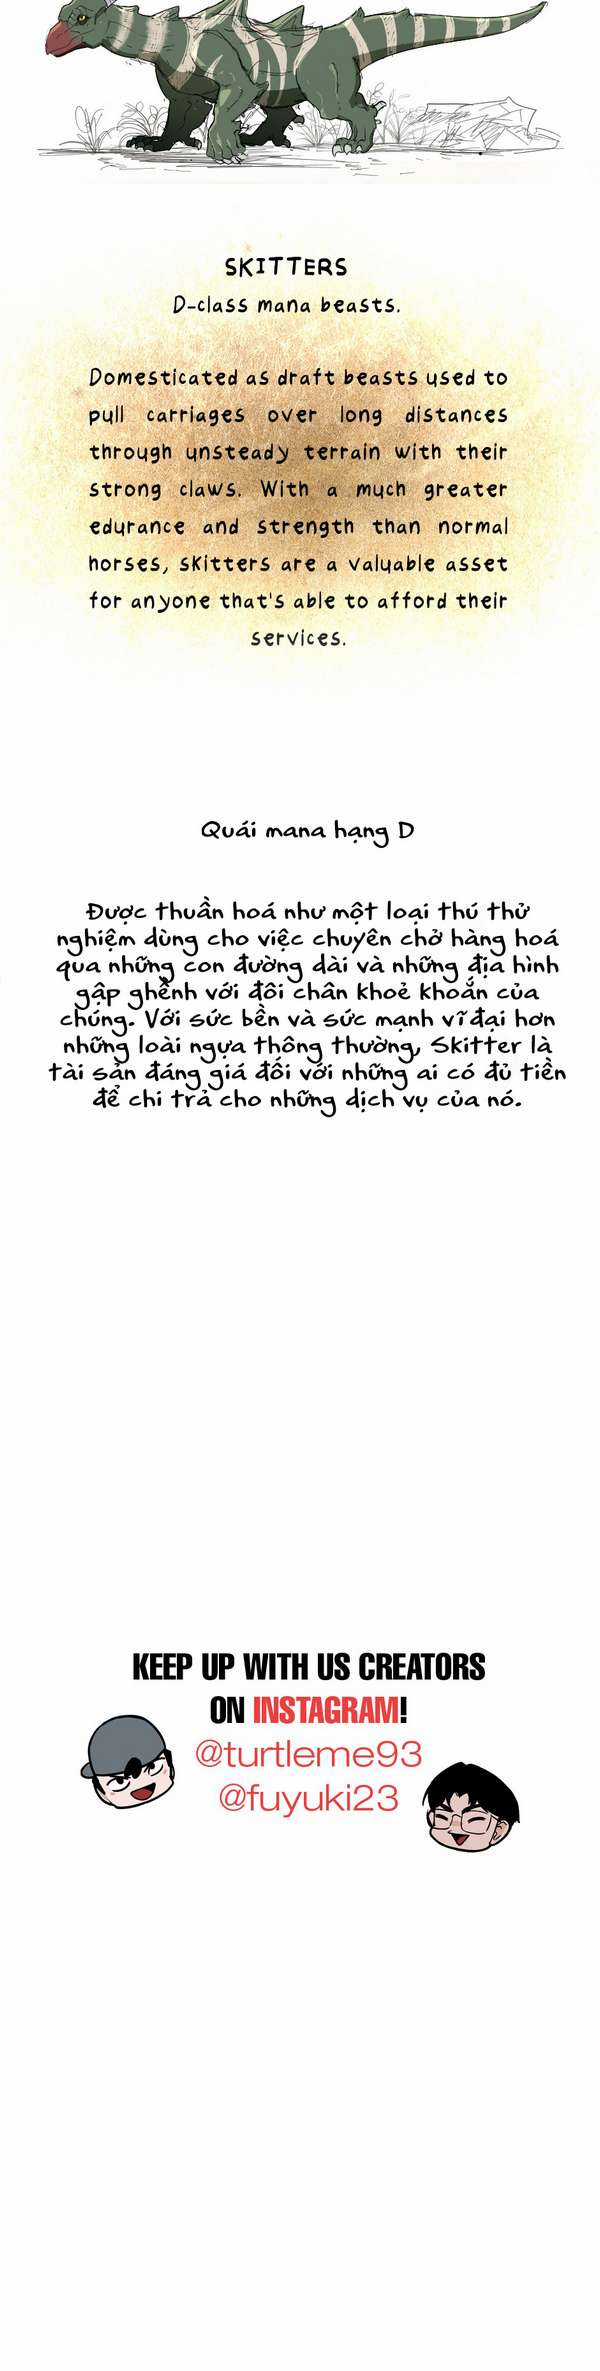 SKITTERS
D-class mana beasts.
Domesticated as draft beasts used to
pull carriages over long distances
through unsteady terrain with their
strong claws. With a much greater
edurance and strength than normal
horses, skitters are a valuable asset
for anyone that's able to afford their
services.
Quái mana hạng D
Được thuần hoá như một loại thú thử
nghiệm dùng cho việc chuyên chở hàng hoá
qua những con đường dài và những địa hình
gập ghềnh với đôi chân khoẻ khoắn của
chúng. Với sức bền và sức mạnh vĩ đại hơn
những loài ngựa thông thường, Skitter là
tài sản đáng giá đối với những ai có đủ tiền
để chi trả cho những dịch vụ của nó.
KEEP UP WITH US CREATORS
ON INSTAGRAM!
@turtleme93
@fuyuki23